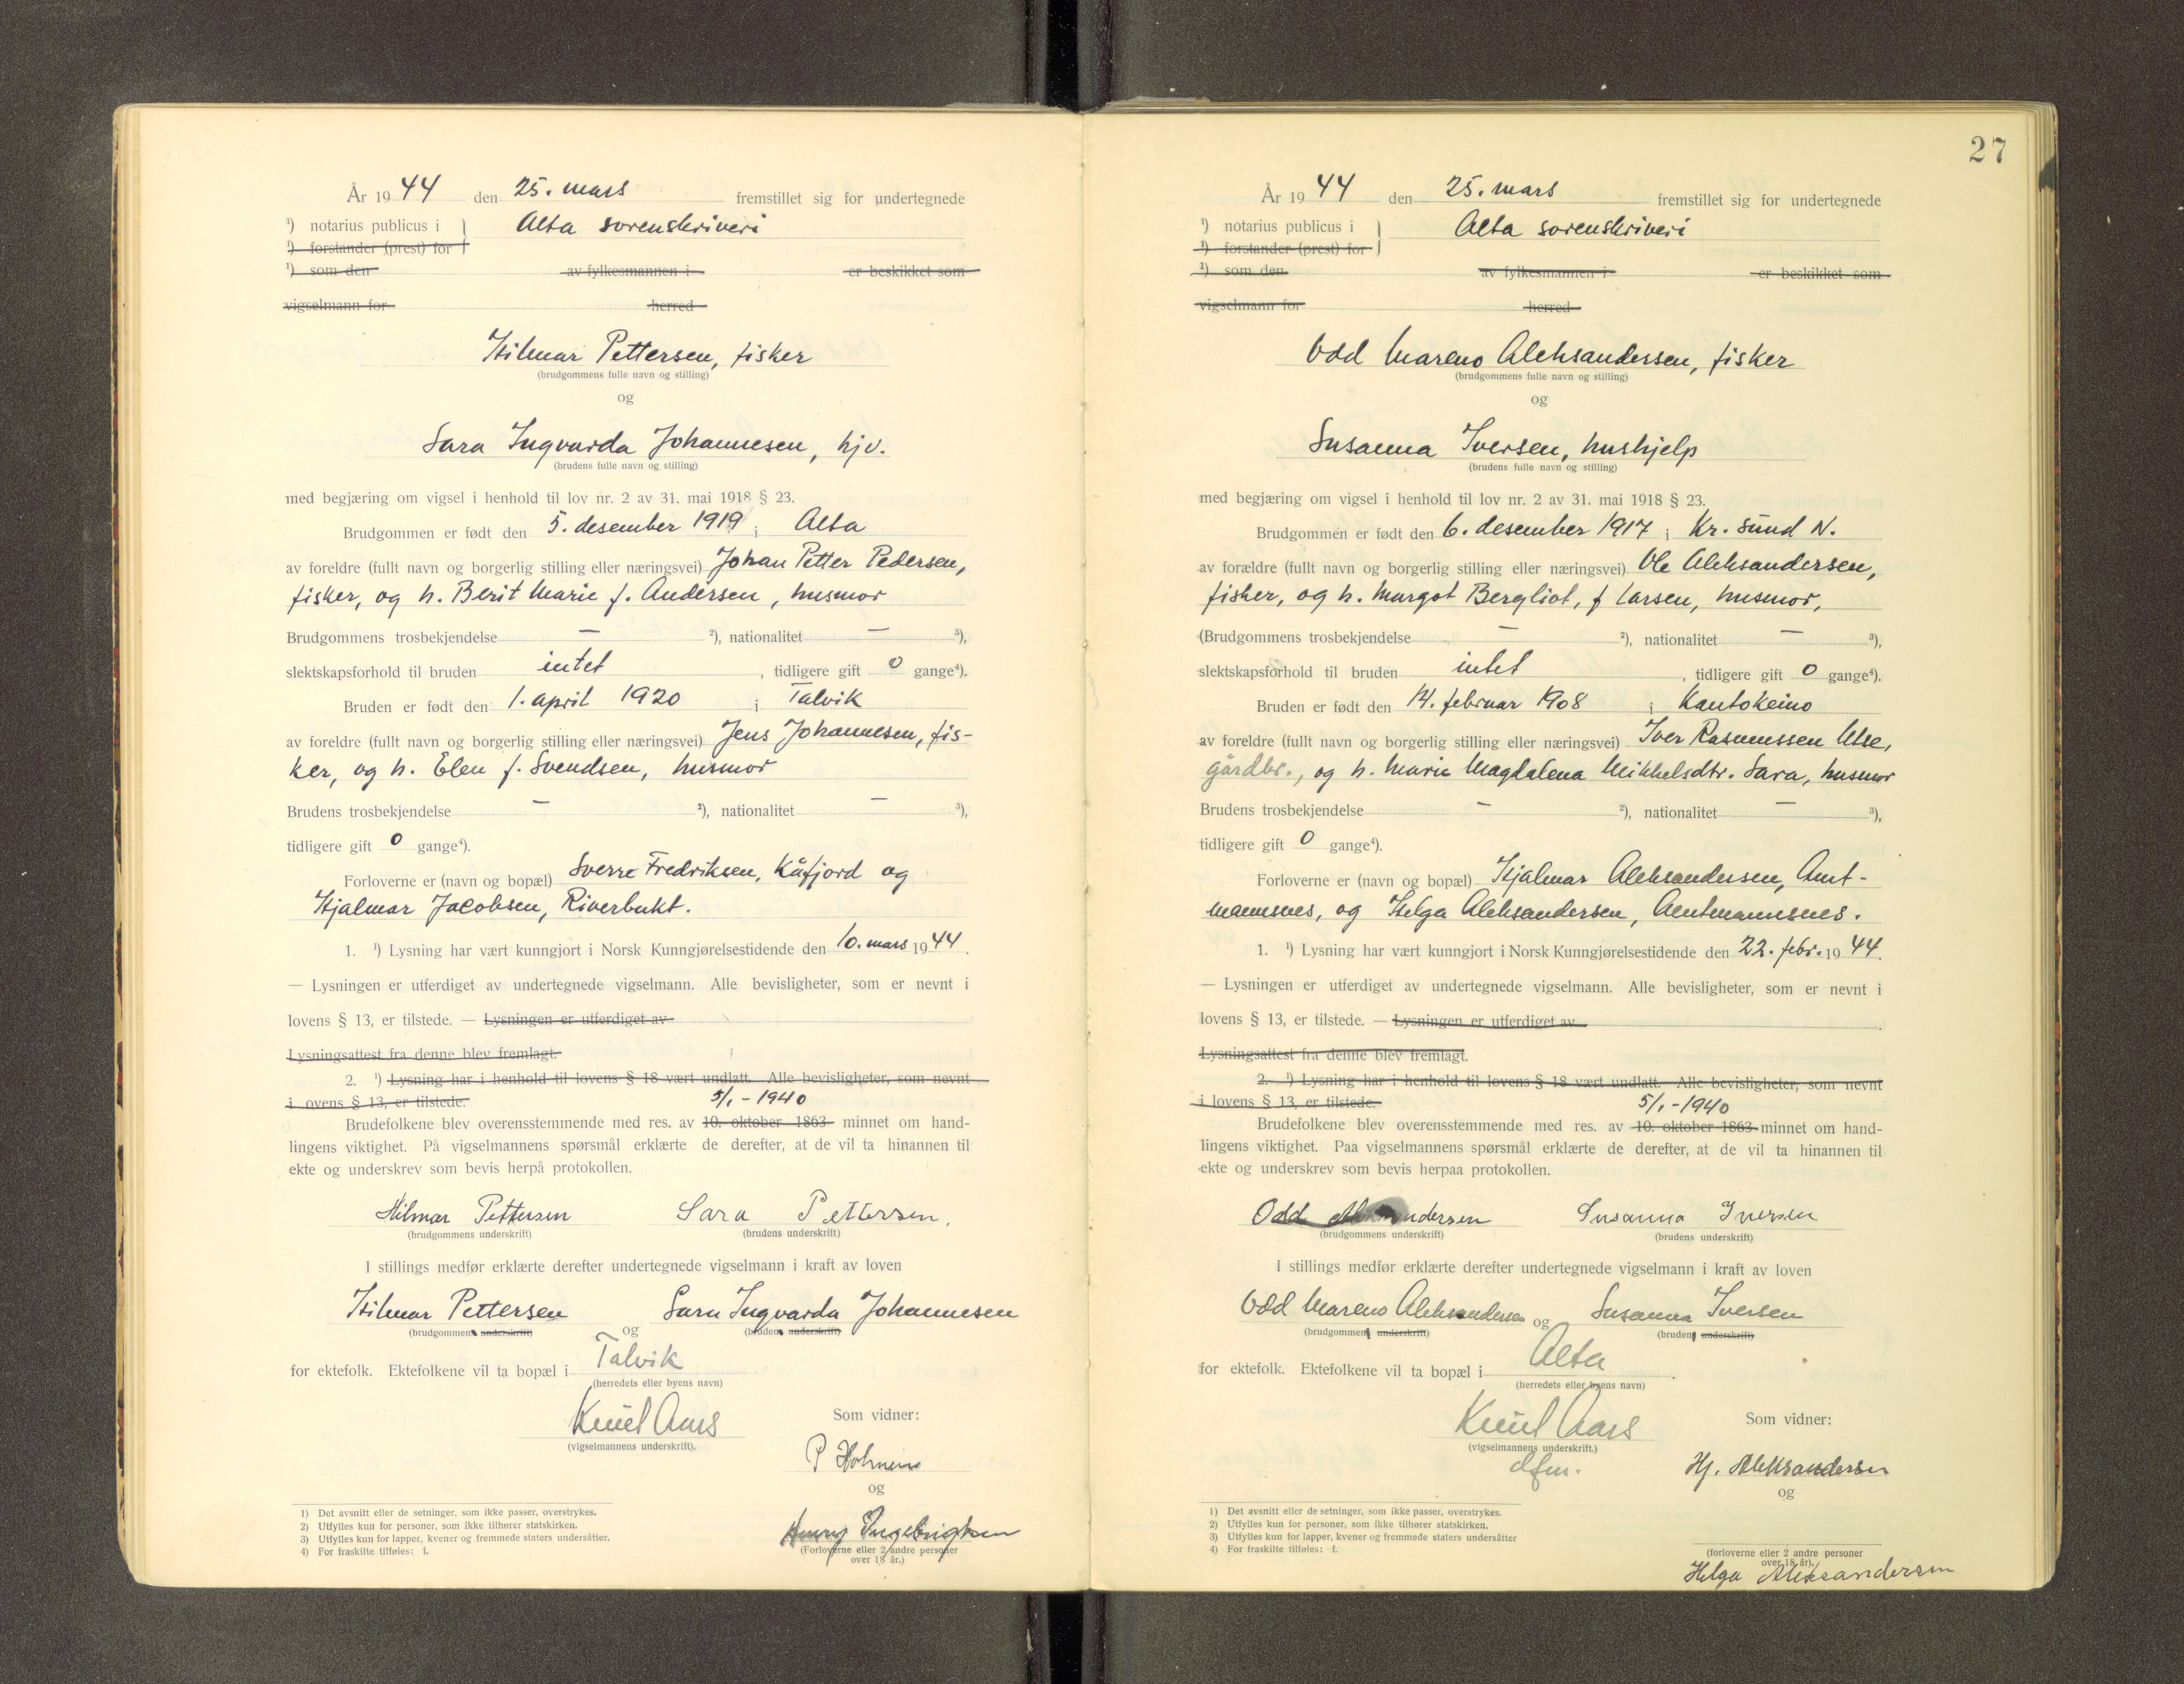 År 1944 den 25. mars fremstillet sig for undertegnede
¹) notarius publicus i } Alta sorenskriveri
¹) forstander (prest) for
¹) som den av fylkesmannen i er beskikket som
vigselmann for herred
Hilmar Pettersen, fisker
(brudgommens fulle navn og stilling)
og
Sara Ingvarda Johannesen, hjv.
(brudens fulle navn og stilling)
med begjæring om vigsel i henhold til lov nr. 2 av 31. mai 1918 § 23.
Brudgommen er født den 5. desember 1919 i Alta
av foreldre (fullt navn og borgerlig stilling eller næringsvei) Johan Petter Pedersen,
fisker, og h. Berit Marie f. Andersen, husmor
Brudgommens trosbekjendelse — ²), nationalitet — ³),
slektskapsforhold til bruden intet, tidligere gift 0 gange⁴).
Bruden er født den 1. april 1920 i Talvik
av foreldre (fullt navn og borgerlig stilling eller næringsvei) Jens Johannesen, fis-
ker, og h. Elen f. Svendsen, husmor
Brudens trosbekjendelse — ²), nationalitet — ³),
tidligere gift 0 gange⁴).
Forloverne er (navn og bopæl) Sverre Fredriksen, Kåfjord og
Hjalmar Jacobsen, Riverbukt.
1. ¹) Lysning har vært kunngjort i Norsk Kunngjørelsestidende den 10. mars 1944.
— Lysningen er utferdiget av undertegnede vigselmann. Alle bevisligheter, som er nevnt i
lovens § 13, er tilstede. — Lysningen er utferdiget av
Lysningsattest fra denne blev fremlagt.
2. ¹) Lysning har i henhold til lovens § 18 vært undlatt. Alle bevisligheter, som nevnt
i ovens § 13, er tilstede. 5/1-1940
Brudefolkene blev overensstemmende med res. av 10. oktober 1863 minnet om hand-
lingens viktighet. På vigselmannens spørsmål erklærte de derefter, at de vil ta hinannen til
ekte og underskrev som bevis herpå protokollen.
Hilmar Pettersen Sara Pettersen.
(brudgommens underskrift) (brudens underskrift)
I stillings medfør erklærte derefter undertegnede vigselmann i kraft av loven
Hilmar Pettersen og Sara Ingvarda Johannesen
(brudgommens underskrift) (brudens underskrift)
for ektefolk. Ektefolkene vil ta bopæl i Talvik
(herredets eller byens navn)
Knut Aars
(vigselmannens underskrift).
Som vidner:
P Holmen
og
Henry Ingebrigtsen
(Forloverne eller 2 andre personer
over 18 år.)
1) Det avsnitt eller de setninger, som ikke passer, overstrykes.
2) Utfylles kun for personer, som ikke tilhører statskirken.
3) Utfylles kun for lapper, kvener og fremmede staters undersåtter.
4) For fraskilte tilføies: f.
27
År 1944 den 25. mars fremstillet sig for undertegnede
¹) notarius publicus i } Alta sorenskriveri
¹) forstander (prest) for
¹) som den av fylkesmannen i er beskikket som
vigselmann for herred
Odd Mareno Aleksandersen, fisker
(brudgommens fulle navn og stilling)
og
Susanna Iversen, hushjelp
(brudens fulle navn og stilling)
med begjæring om vigsel i henhold til lov nr. 2 av 31. mai 1918 § 23.
Brudgommen er født den 6. desember 1917 i Kr. sund N.
av forældre (fullt navn og borgerlig stilling eller næringsvei) Ole Aleksandersen,
fisker, og h. Margot Bergliot, f Larsen, husmor,
(Brudgommens trosbekjendelse — ²), nationalitet — ³),
slektskapsforhold til bruden intet, tidligere gift 0 gange⁴).
Bruden er født den 14. februar 1908 i Kautokeino
av foreldre (fullt navn og borgerlig stilling eller næringsvei) Iver Rasmussen Utse,
gårdbr., og h. Marie Magdalena Mikkelsdtr. Sara, husmor
Brudens trosbekjendelse — ²), nationalitet — ³),
tidligere gift 0 gange⁴).
Forloverne er (navn og bopæl) Hjalmar Aleksandersen, Amt-
mannsnes, og Helga Aleksandersen, Amtmannsnes.
1. ¹) Lysning har vært kunngjort i Norsk Kunngjørelsestidende den 22. febr. 1944.
— Lysningen er utferdiget av undertegnede vigselmann. Alle bevisligheter, som er nevnt i
lovens § 13, er tilstede. — Lysningen er utferdiget av
Lysningsattest fra denne blev fremlagt.
2. ¹) Lysning har i henhold til lovens § 18 vært undlatt. Alle bevisligheter, som nevnt
i lovens § 13, er tilstede. 5/1-1940
Brudefolkene blev overensstemmende med res. av 10. oktober 1863 minnet om hand-
lingens viktighet. Paa vigselmannens spørsmål erklærte de derefter, at de vil ta hinannen til
ekte og underskrev som bevis herpaa protokollen.
Odd Aleksandersen Susanna Iversen
(brudgommens underskrift) (brudens underskrift)
I stillings medfør erklærte derefter undertegnede vigselmann i kraft av loven
Odd Mareno Aleksandersen og Susanna Iversen
(brudgommens underskrift) (brudens underskrift)
for ektefolk. Ektefolkene vil ta bopæl i Alta.
(herredets eller byens navn)
Knut Aars
(vigselmannens underskrift.)
dfm.
Som vidner:
Hj. Aleksandersen
og
(forloverne eller 2 andre personer
over 18 år).
Helga Aleksandersen
1) Det avsnitt eller de setninger, som ikke passer, overstrykes.
2) Utfylles kun for personer, som ikke tilhører statskirken.
3) Utfylles kun for lapper, kvener og fremmede staters undersåtter
4) For fraskilte tilføies: f.